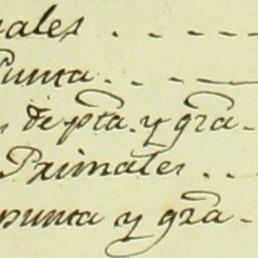 uales . . - - -
Punta . . - —
de pta. y gra -
Primales . . .
punta y gra -